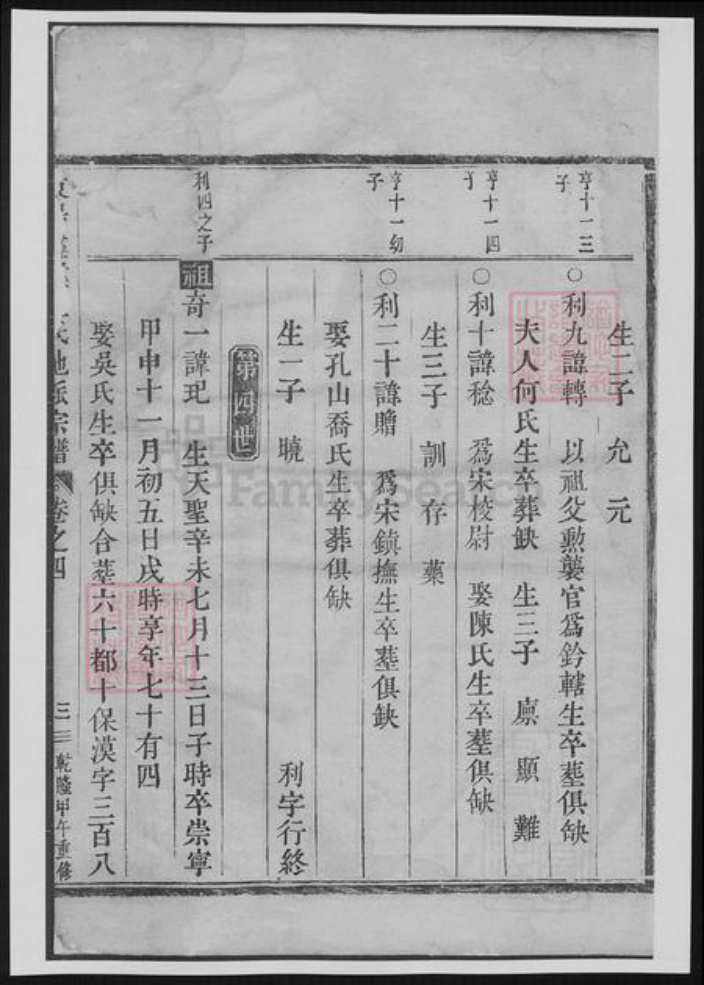 生二子 允 元
亨十一三子
○利九諱轉 以祖父勲襲官爲鈐轄生卒塟俱缺
夫人何氏生卒葬缺 生三子 原 顯 難
亨十一四子
○利十諱稔 爲宋校尉 娶陳氏生卒塟俱缺
生三子 訓 存 藥
亨十一幼子
○利二十諱贍 爲宋鎮撫生卒塟俱缺
娶孔山喬氏生卒葬俱缺
生一子 曉 利字行終
第四世
利四之子
祖奇一諱玘 生天聖辛未七月十三日子時卒崇寧
甲申十一月初五日戌時享年七十有四
娶吳氏生卒俱缺合塟六十都十保漠字三百八
氏地派宗譜 卷之四 三 乾隆甲午重修
FamilySearch